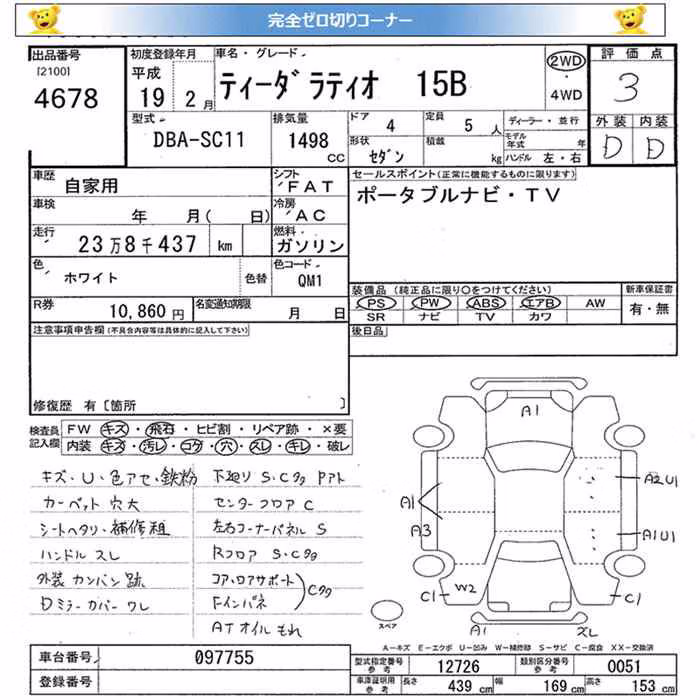 完全ゼロ切りコーナー
出品番号
[2100]
4678
初度登録年月
平成
19 2月
車名・グレード
ティーダ ラティオ 15B
2WD
・
4WD
評価点
3
外装 内装
D D
型式
DBA-SC11
排気量
1498
cc
ドア 4
定員 5 人
形状 セダン
積載 kg
ディーラー・並行
モデル年式 年
ハンドル 左・右
車歴 自家用
シフト FAT
車検 年 月( 日)
冷房 AC
走行 23万8千437 km
燃料 ガソリン
色 ホワイト 色替
色コード QM1
R券 10,860円
名変通知期限 月 日
セールスポイント(正常に機能するものに限ります)
ポータブルナビ・TV
装備品 (純正品に限り○をつけてください)
PS PW ABS エアB AW
SR ナビ TV カワ
新車保証書
有・無
後日品
注意事項申告欄(不具合内容等は具体的に記入して下さい)
修復歴 有〔箇所 〕
検査員記入欄
FW キズ・飛石・ヒビ割・リペア跡・×要
内装 キズ・汚レ・コゲ・穴・スレ・キレ・破レ
キズ・U・色アセ・鉄粉
カーペット 穴大
シートヘタリ・補修粗
ハンドル スレ
外装 カンバン跡
Dミラーカバー ワレ
下廻リ S・Cタタ Pアト
センターフロア C
左右コーナーパネル S
Rフロア S・Cタタ
コア・ロアサポート
Fインパネ
Cタタ
ATオイルもれ
A1
A1
A3
A2U1
A1U1
C1
W2
C1
A1
スレ
スペア
A-キズ E-エクボ U-凹み W-補修跡 S-サビ C-腐食 XX-交換済
車台番号 097755
登録番号
型式指定番号 参考 12726
類別区分番号 参考 0051
車庫証明用 参考 長さ 439 cm 幅 169 cm 高さ 153 cm